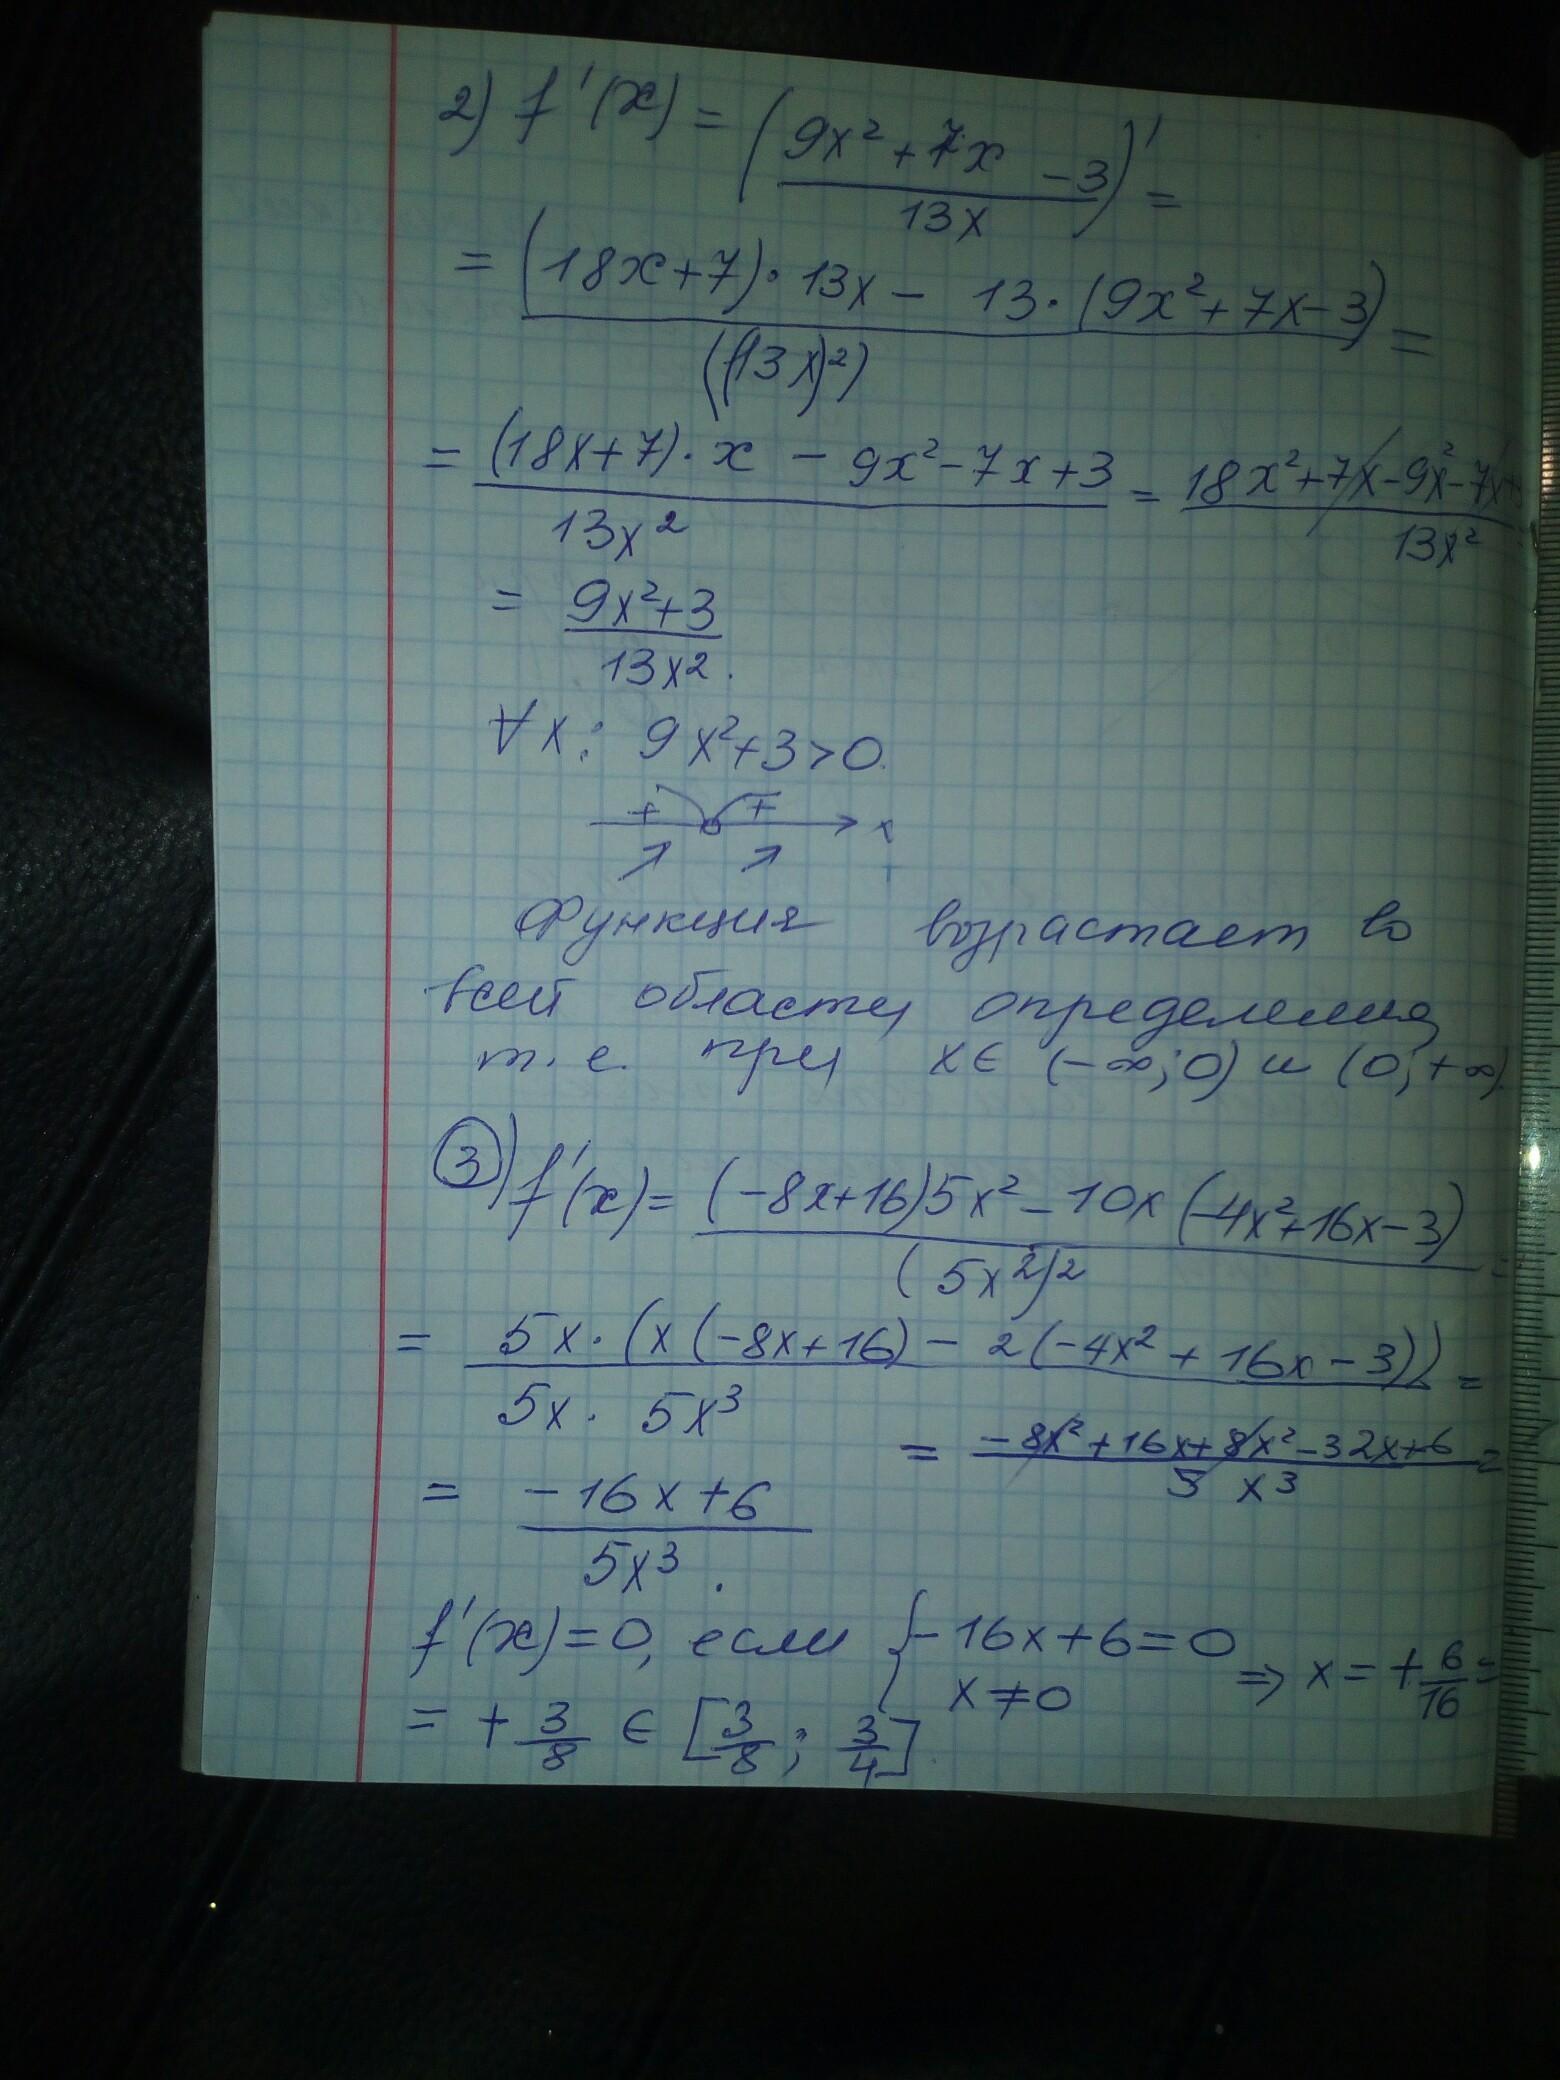 2) f'(x) = ((9x²+7x -3)/(13x))' =
= ((18x+7)·13x - 13·(9x²+7x-3))/((13x)²) =
= ((18x+7)·x - 9x²-7x+3)/(13x²) = (18x²+7x-9x²-7x+3)/(13x²)
= (9x²+3)/(13x²).
∀x: 9x²+3>0.
+ + x
↗ ↗
Функция возрастает во
всей области определения,
т.е. при x∈ (-∞;0) и (0;+∞).
3) f'(x)= ((-8x+16)5x² - 10x(-4x²+16x-3))/((5x²)²) =
= (5x·(x(-8x+16) - 2(-4x²+16x-3)))/(5x·5x³) =
= (-8x²+16x+8x²-32x+6)/(5x³) =
= (-16x+6)/(5x³).
f'(x)=0, если { -16x+6=0 x≠0 ⇒ x=+6/16 =
= +3/8 ∈ [3/8; 3/4].